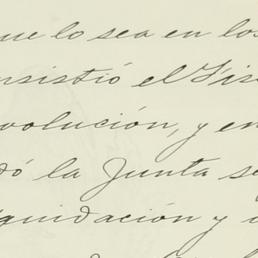 que lo sea en los
nsistió el Fis
volución, y en
dó la Junta se
quidación y